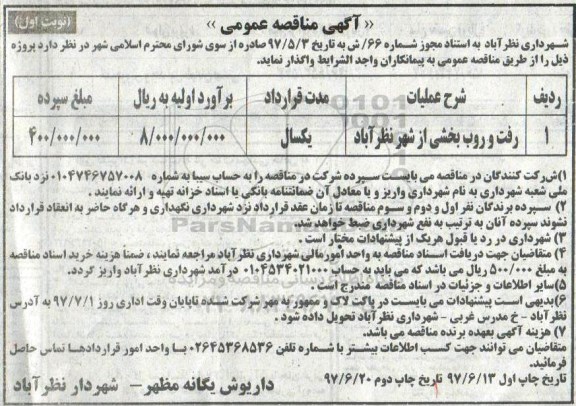 (نوبت اول)
« آگهی مناقصه عمومی »
شهرداری نظرآباد به استناد مجوز شماره ۶۶/ش به تاریخ ۹۷/۵/۳ صادره از سوی شورای محترم اسلامی شهر در نظر دارد پروژه
ذیل را از طریق مناقصه عمومی به پیمانکاران واجد الشرایط واگذار نماید.
ردیف شرح عملیات مدت قرارداد برآورد اولیه به ریال مبلغ سپرده
۱ رفت و روب بخشی از شهر نظرآباد یکسال ۸/۰۰۰/۰۰۰/۰۰۰ ۴۰۰/۰۰۰/۰۰۰
۱)شرکت کنندگان در مناقصه می بایست سپرده شرکت در مناقصه را به حساب سیبا به شماره ۰۱۰۴۷۴۶۷۵۷۰۰۸ نزد بانک
ملی شعبه شهرداری به نام شهرداری واریز و یا معادل آن ضمانتنامه بانکی یا اسناد خزانه تهیه و ارائه نمایند .
۲) سپرده برندگان نفر اول و دوم و سوم مناقصه تا زمان عقد قرارداد نزد شهرداری نگهداری و هرگاه حاضر به انعقاد قرارداد
نشوند سپرده آنان به ترتیب به نفع شهرداری ضبط خواهد شد.
۳) شهرداری در رد یا قبول هریک از پیشنهادات مختار است .
۴) متقاضیان جهت دریافت اسناد مناقصه به واحد امورمالی شهرداری نظرآباد مراجعه نمایند ، ضمنا هزینه خرید اسناد مناقصه
به مبلغ ۵۰۰/۰۰۰ ریال می باشد که می باید به حساب ۰۱۰۴۵۳۴۰۲۱۰۰۰ درآمد شهرداری نظرآباد واریز گردد.
۵)سایر اطلاعات و جزئیات در اسناد مناقصه مندرج است .
۶)بدیهی است پیشنهادات می بایست در پاکت لاک و ممهور به مهر شرکت شده تاپایان وقت اداری روز ۹۷/۷/۱ به آدرس
نظرآباد - خ مدرس غربی - شهرداری نظرآباد تحویل داده شود .
۷) هزینه آگهی بعهده برنده مناقصه می باشد.
متقاضیان می توانند جهت کسب اطلاعات بیشتر با شماره تلفن ۰۲۶۴۵۳۶۸۵۳۶ با واحد امور قراردادها تماس حاصل
فرمائید.
تاریخ چاپ اول ۹۷/۶/۱۳ تاریخ چاپ دوم ۹۷/۶/۲۰
داریوش یگانه مظهر– شهردار نظرآباد